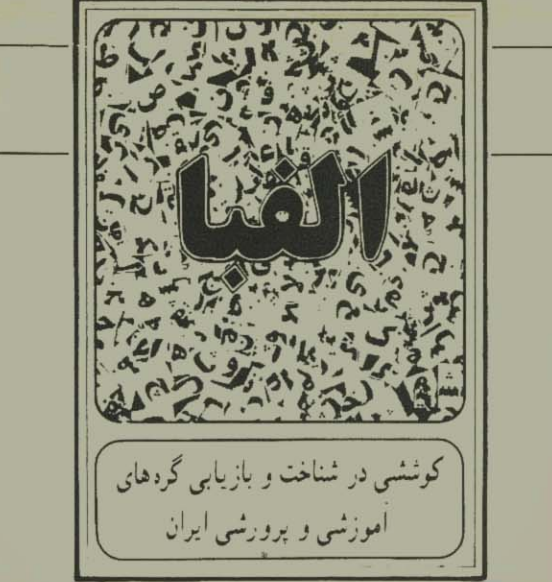 الفبا
کوششی در شناخت و بازیابی گره‌های
آموزشی و پرورشی ایران